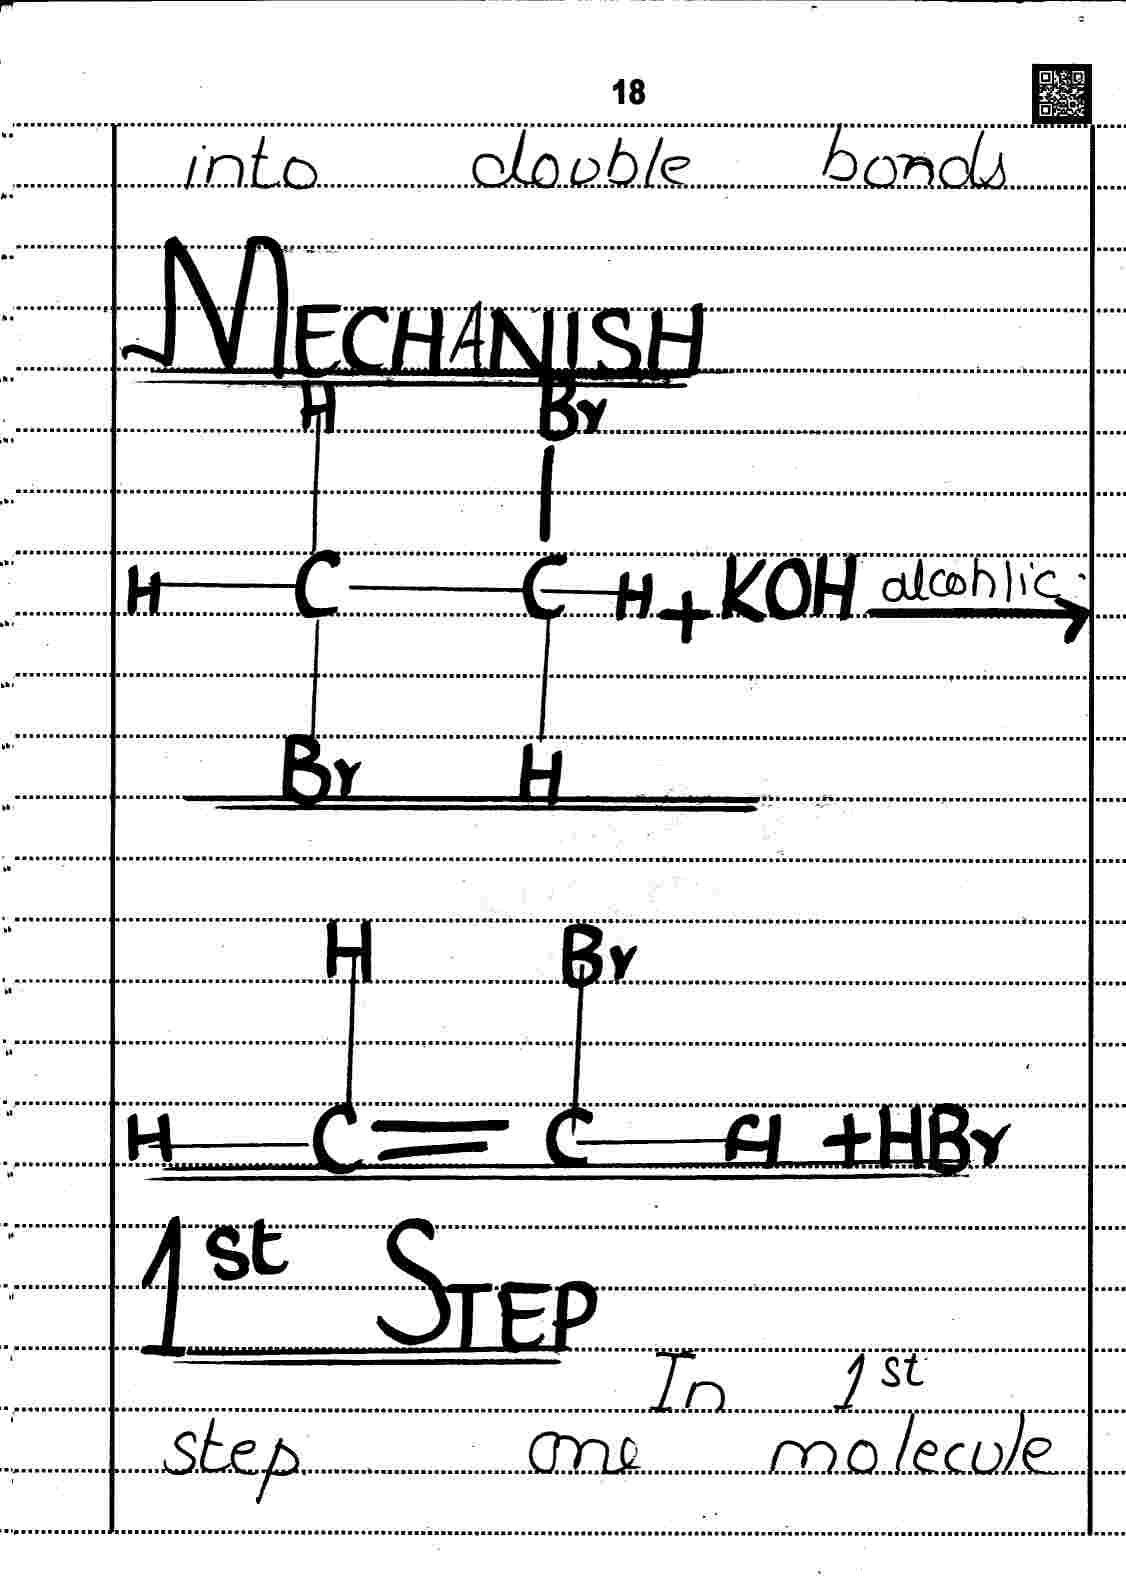 18
into double bonds
MECHANISH
H Br
H C C H + KOH alcohlic
Br H
H Br
H C = C H + HBr
1st STEP
In 1st
step one molecule